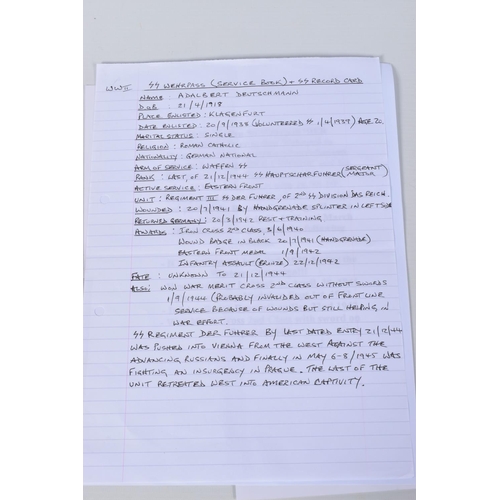 WWII SS WEHRPASS (SERVICE BOOK) + SS RECORD CARD
NAME : ADALBERT DEUTSCHMANN
D.O.B : 21/4/1918
PLACE ENLISTED : KLAGENFURT
DATE ENLISTED : 20/9/1938 (VOLUNTEERED SS 1/4/1939) AGE 20.
MARITAL STATUS : SINGLE
RELIGION : ROMAN CATHOLIC
NATIONALITY : GERMAN NATIONAL
ARM OF SERVICE : WAFFEN SS
RANK : LAST, OF 21/12/1944 SS HAUPTSCHARFUHRER (SERGEANT MAJOR)
ACTIVE SERVICE : EASTERN FRONT
UNIT : REGIMENT III SS DER FUHRER, OF 2ND SS DIVISION DAS REICH.
WOUNDED : 20/7/1941 BY HANDGRENADE SPLINTER IN LEFT SIDE
RETURNED GERMANY : 20/3/1942 REST + TRAINING
AWARDS : IRON CROSS 2ND CLASS, 3/6/1940
WOUND BADGE IN BLACK 20/7/1941 (HANDGRENADE)
EASTERN FRONT MEDAL 1/9/1942
INFANTRY ASSAULT (BRONZE) 22/12/1942
FATE : UNKNOWN TO 21/12/1944
ALSO : WON WAR MERIT CROSS 2ND CLASS WITHOUT SWORDS
1/9/1944 (PROBABLY INVALIDED OUT OF FRONT LINE
SERVICE BECAUSE OF WOUNDS BUT STILL HELPING IN
WAR EFFORT.
SS REGIMENT DER FUHRER BY LAST DATED ENTRY 21/12/44
WAS PUSHED INTO VIENNA FROM THE WEST AGAINST THE
ADVANCING RUSSIANS AND FINALLY IN MAY 6-8/1945 WAS
FIGHTING AN INSURGENCY IN PRAGUE. THE LAST OF THE
UNIT RETREATED WEST INTO AMERICAN CAPTIVITY.